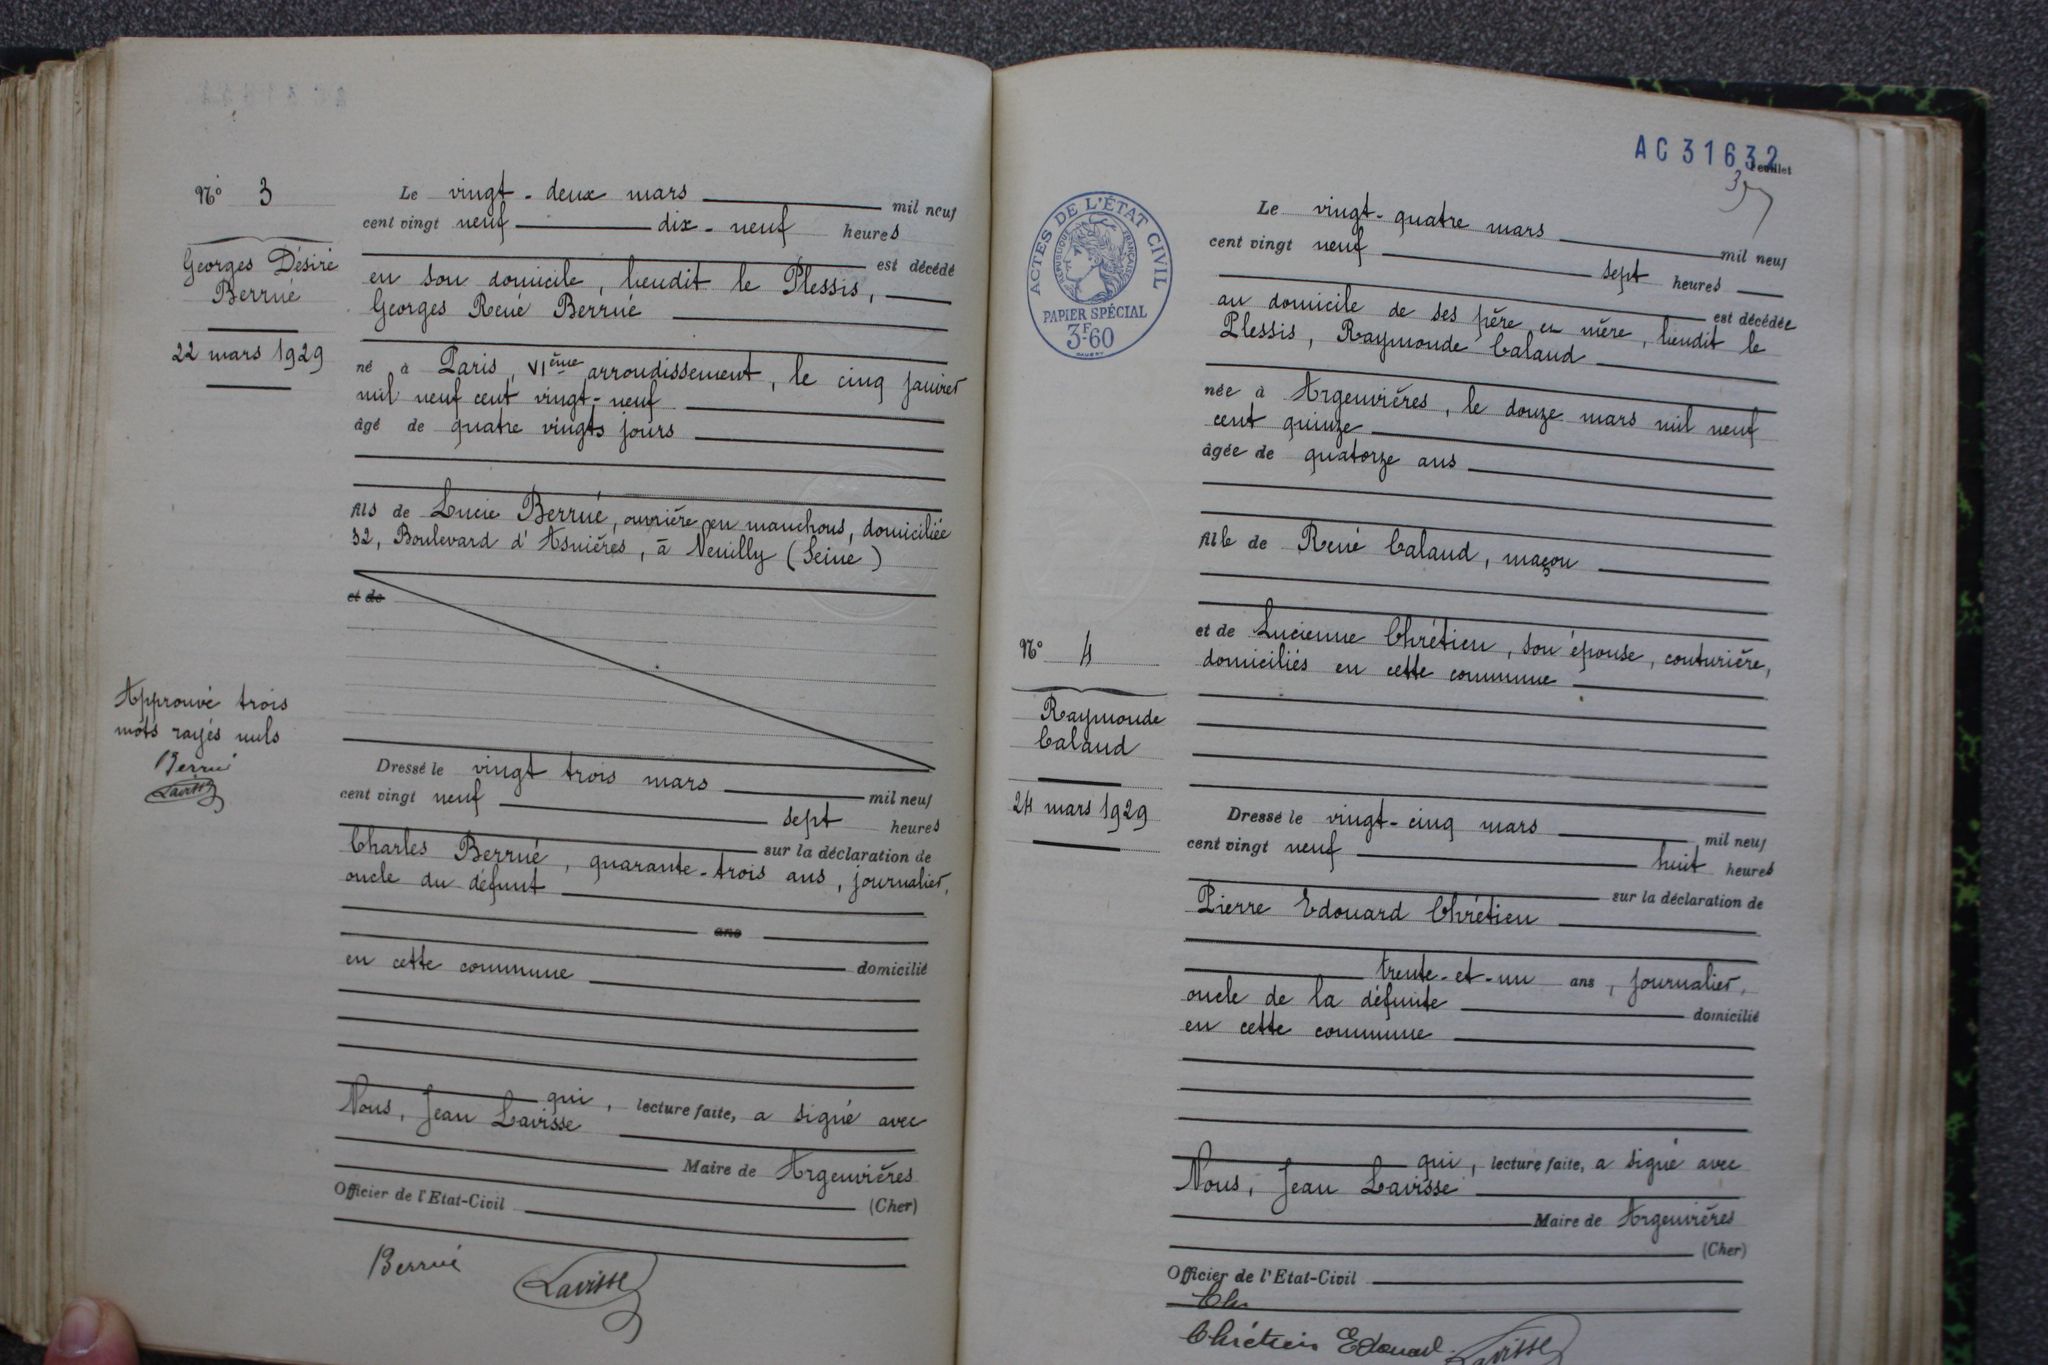 Nº 3
Georges Désiré
Berrué
22 mars 1929
Le vingt-deux mars mil neuf
cent vingt neuf dix-neuf heures
est décédé
en son domicile, lieudit le Plessis,
Georges René Berrué
né à Paris, VIème arrondissement, le cinq janvier
mil neuf cent vingt-neuf
âgé de quatre vingts jours
fils de Lucie Berrué, ouvrière en manchons, domiciliée
32, Boulevard d'Asnières, à Neuilly (Seine)
et de
Approuvé trois
mots rayés nuls
Berrué
Lavisse
Dressé le vingt trois mars mil neuf
cent vingt neuf sept heures
sur la déclaration de
Charles Berrué, quarante-trois ans, journalier,
oncle du défunt
ans
domicilié
en cette commune
qui, lecture faite, a signé avec
Nous, Jean Lavisse
Maire de Argenvières
(Cher)
Officier de l'Etat-Civil
Berrué
Lavisse
AC31632
Feuillet
37
ACTES DE L'ÉTAT CIVIL
RÉPUBLIQUE FRANÇAISE
PAPIER SPÉCIAL
3F60
Nº 4
Raymonde
Calaud
24 mars 1929
Le vingt-quatre mars mil neuf
cent vingt neuf sept heures
est décédée
au domicile de ses père et mère, lieudit le
Plessis, Raymonde Calaud
née à Argenvières, le douze mars mil neuf
cent quinze
âgée de quatorze ans
fille de René Calaud, maçon
et de Lucienne Chrétien, son épouse, couturière,
domiciliés en cette commune
Dressé le vingt-cinq mars mil neuf
cent vingt neuf huit heures
sur la déclaration de
Pierre Edouard Chrétien
trente-et-un ans, journalier,
oncle de la défunte domicilié
en cette commune
qui, lecture faite, a signé avec
Nous, Jean Lavisse
Maire de Argenvières
(Cher)
Officier de l'Etat-Civil
Chr
Chrétien Edouard
Lavisse